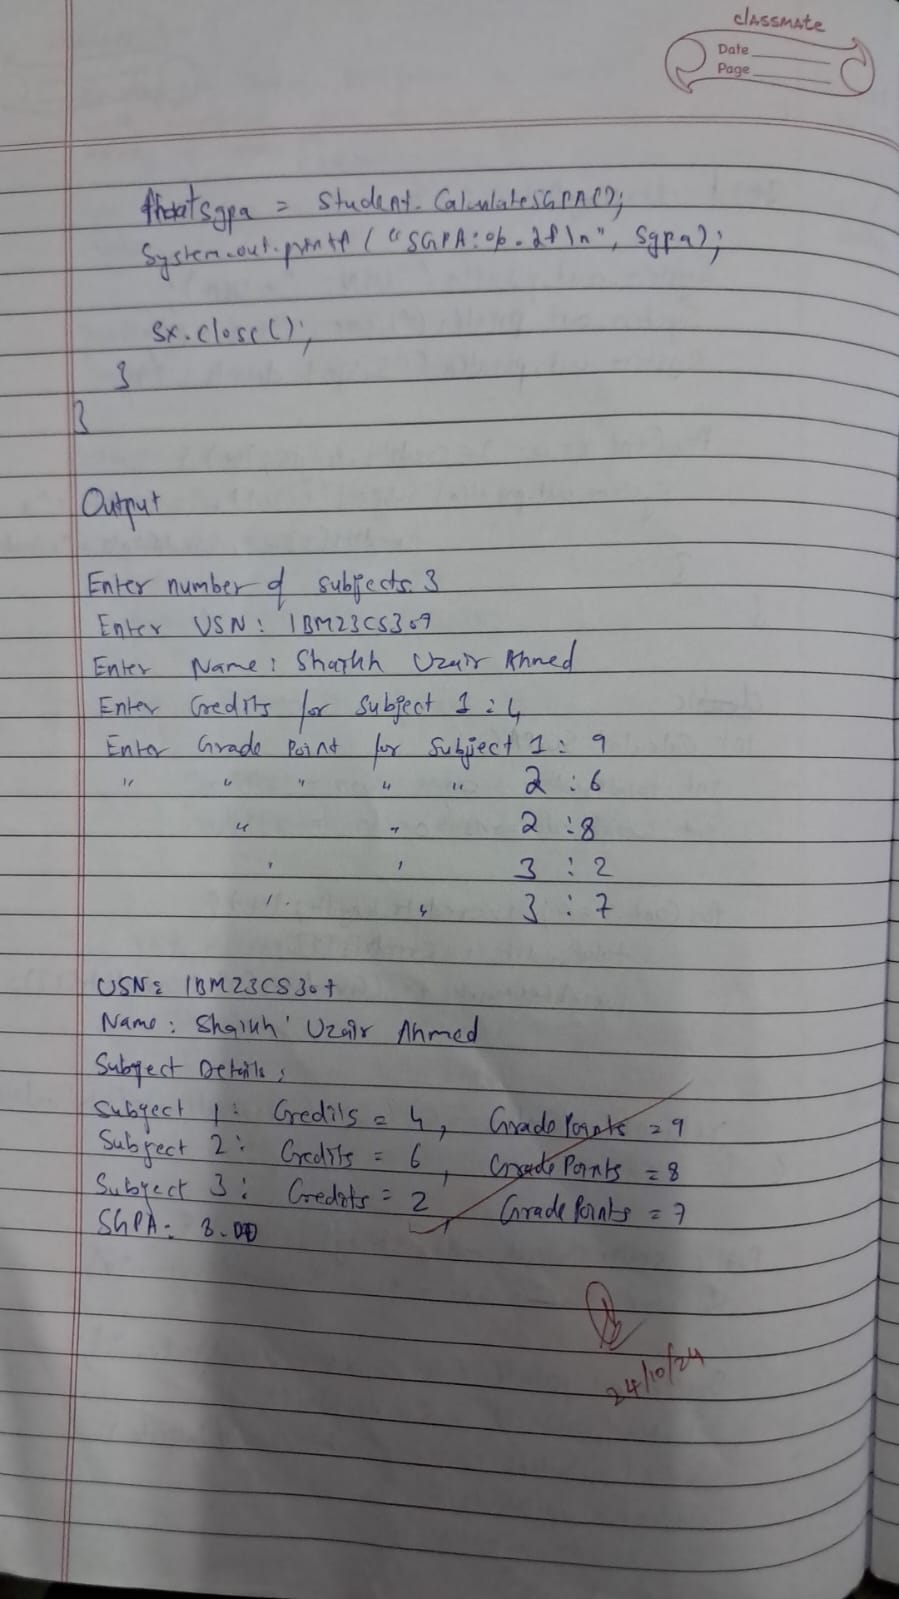 classmate
Date
Page
float sgpa = Student.CalculateSGPA();
System.out.printf("SGPA:%.2f\n", sgpa);
sx.close();
}
}
Output
Enter number of subjects: 3
Enter USN: 1BM23CS309
Enter Name: Shaikh Uzair Ahmed
Enter Credits for Subject 1 : 4
Enter Grade Point for Subject 1 : 9
" " " " " 2 : 6
" " 2 : 8
" " 3 : 2
" " 3 : 7
USN: 1BM23CS307
Name: Shaikh Uzair Ahmed
Subject Details:
Subject 1: Credits = 4, Grade Points = 9
Subject 2: Credits = 6, Grade Points = 8
Subject 3: Credits = 2, Grade Points = 7
SGPA: 8.00
24/10/24